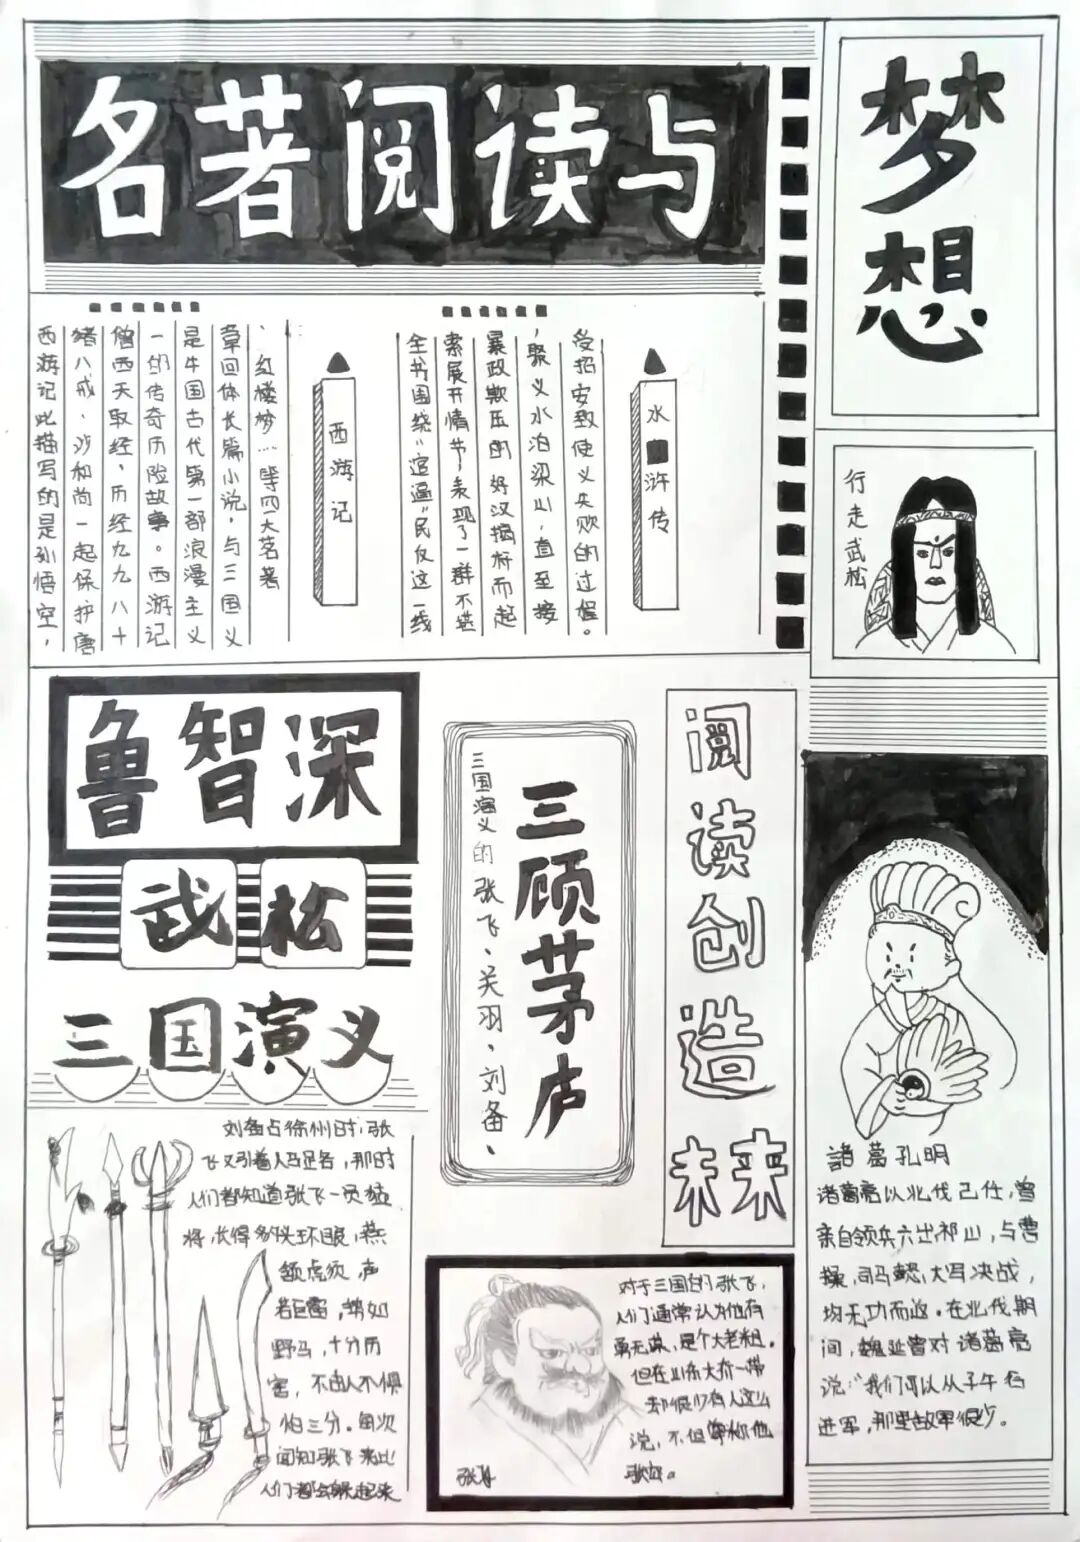 名著阅读与
梦
想
水浒传
受招安致使义失败的过程。
，聚义水泊梁山，直至接
暴政欺压的好汉揭杆而起
索展开情节，表现了一群不堪
全书围绕“逼”民反这一线
西游记
、红楼梦…等四大茗著
章回体长篇小说，与三国义
是牛国古代第一部浪漫主义
一的传奇历险故事。西游记
僧西天取经，历经九九八十
猪八戒、沙和尚一起保护唐
西游记此描写的是孙悟空，
行走武松
鲁智深
武松
三国演义
三国演义的张飞、关羽、刘备、
三顾茅庐
阅读创造未来
刘备占徐州时，张
飞又引着人马足各，那时
人们都知道张飞一员猛
将，长得豹头环眼，燕
颔虎须，声
若巨雷，势如
野马，十分历
害，不由人不惧
怕三分。每次
闻知张飞来此
人们都会躲起来
对于三国的张飞，
人们通常认为他有
勇无谋，是个大老粗。
但在山东大乔一带
却很少有人这么
说，不但尊称他
张飞
諸葛孔明
诸葛亮以北伐己任，曾
亲自领兵六出祁山，与曹
操，司马懿，大写决战，
均无功而返。在北伐期
间，魏延曾对诸葛亮
说：“我们可以从子午谷
进军，那里敌军很少。